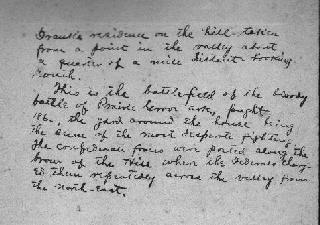 residence on the hill taken
from a point in the valley about
a quarter of a mile distant looking
South.
This is the battlefield of the bloody
battle of Prairie Grove Ark, fought
186, the yard around the house being
the scene of the most desperate fighting
The Confederate forces were posted along the
brow of the Hill where the Federals charg-
ed them repeatedly across the valley from
the north-east.